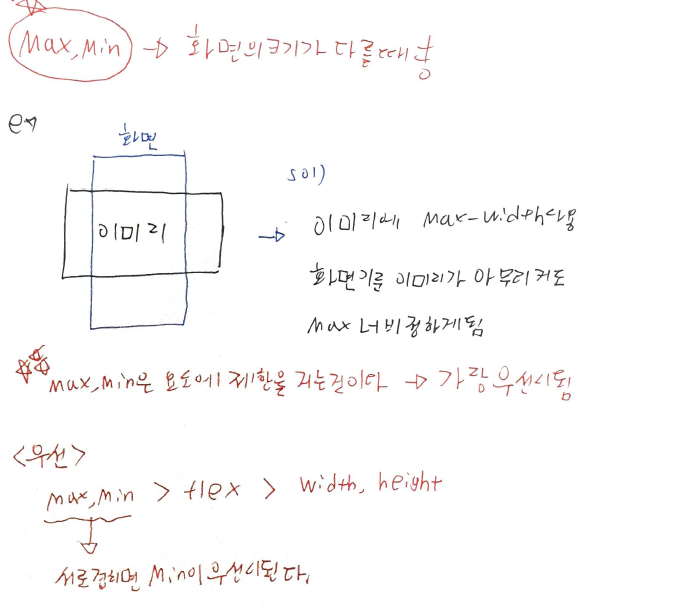 Max, Min → 화면의크기가 다를때 사용
ex
화면
이미지
sol)
→ 이미지에 Max-width사용
화면기준 이미지가 아무리커도
Max 너비 정하게됨
max, min은 요소에 제한을 거는것이다 → 가장 우선시됨
<우선>
max, min > flex > width, height
서로겹치면 Min이 우선시된다.